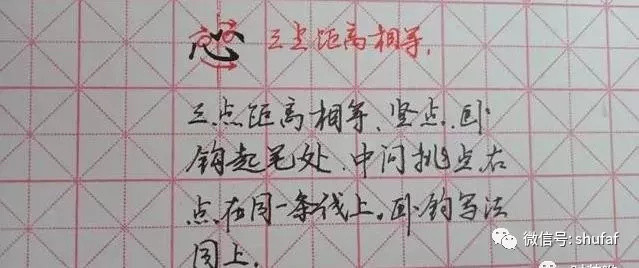 心 三点距离相等.
三点距离相等、竖点、卧
钩起笔处、中间挑点、右
点在同一条线上。卧钩写法
同上.
微信号: shufaf